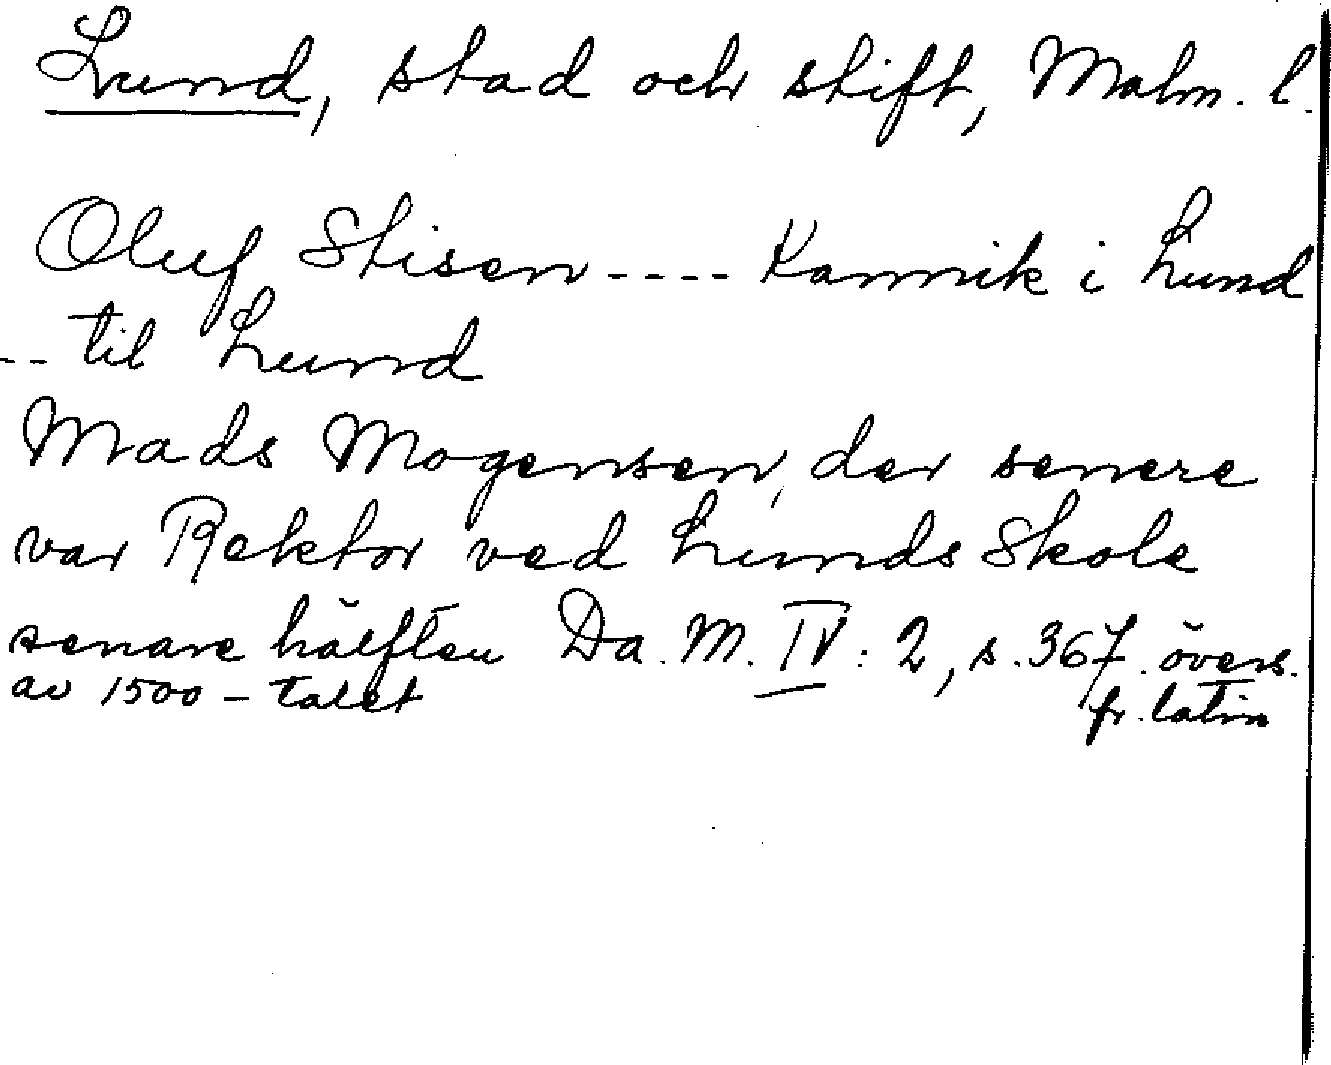 Lund, stad och stift, Malm. l.
Oluf Stisen ---- Kannik i Lund
-- til Lund
Mads Mogensen, der senere
var Rektor ved Lunds Skole
senare hälften Da. M. IV: 2, s. 367. övers.
av 1500-talet fr. latin